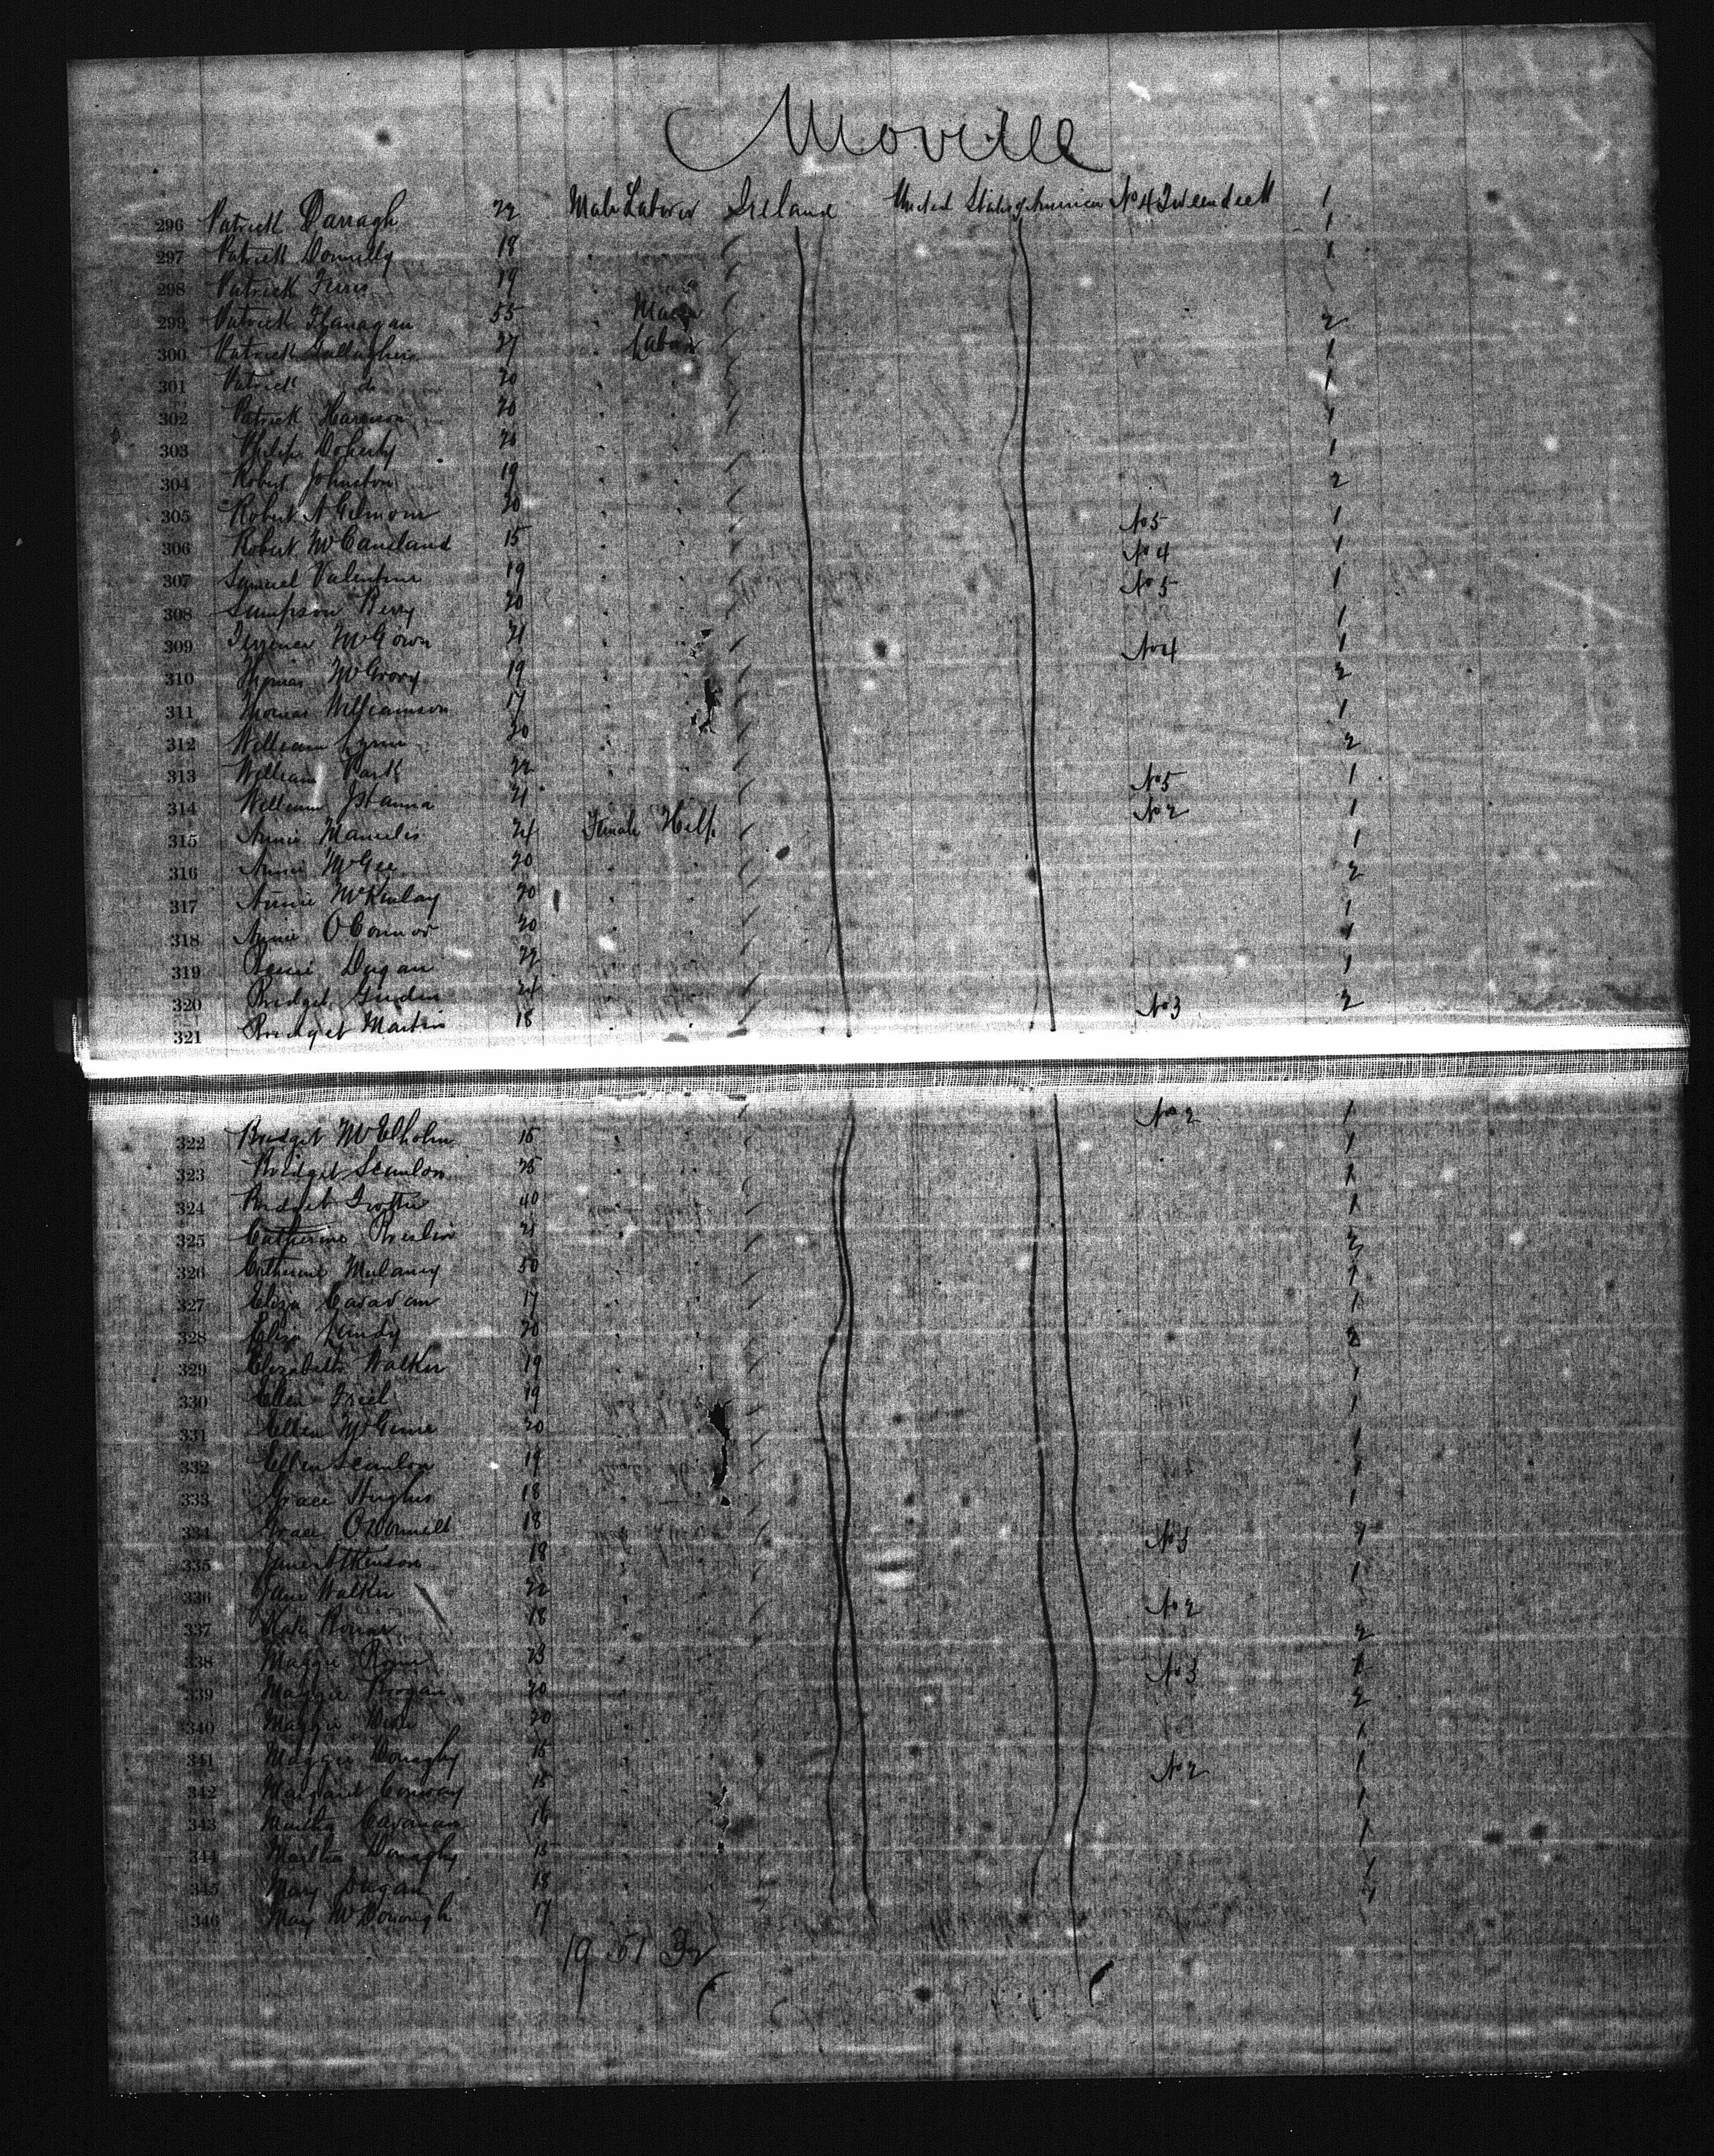 Moville
296 Patrick Darragh 22 Male Laborer Ireland United States of America No 4 Tweendeck 1
297 Patrick Donnelly 18 1
298 Patrick Ferris 19 1
299 Patrick Flanagan 55 Mason
300 Patrick Gallagher 27 Labor 2
301 Patrick do 20 1
302 Patrick Harrison 20 1
303 Philip Doherty 21 1
304 Robert Johnston 19 1
305 Robert A Gilmour 20 2
306 Robert McCausland 15 No 5 1
307 Samuel Valentine 19 No 4 1
308 Sampson Berry 20 No 5 1
309 McGown 21 1
310 Thomas McGrory 19 No 4 1
311 Thomas Williamson 17 2
312 William Lynn 20 1
313 William Park 22 2
314 William 21 No 5 1
315 Annie 24 Female Help No 2 1
316 Annie McGee 20 1
317 Annie McKinlay 20 2
318 Annie O'Connor 20 1
319 Dugan 22 1
320 Bridget 24 1
321 Bridget Martin 18 No 3 2
322 Bridget McElholm 16 No 2 1
323 Bridget Scanlon 25 1
324 Bridget 40 1
325 Catherine Breslin 21 1
326 Catherine Mulaney 50 2
327 Eliza Cavavan 17 1
328 Eliza Lundy 20 1
329 Elizabeth Walker 19 2
330 Ellen Friel 19 1
331 Ellen 20 1
332 Ellen Scanlon 19 1
333 Grace Hughes 18 1
334 Grace O'Donnell 18 1
335 Jane Atkinson 18 No 3 1
336 Jane Walker 22 1
337 Kate 18 No 2
338 Maggie 23 2
339 Maggie Brogan 20 No 3 1
340 Maggie 20 2
341 Maggie Donaghy 16 1
342 Margaret Conway 15 No 2 1
343 Martha Cavanan 16 1
344 Martha Donaghy 15 1
345 Mary Dugan 18 1
346 Mary McDonough 17 1
19 51 32